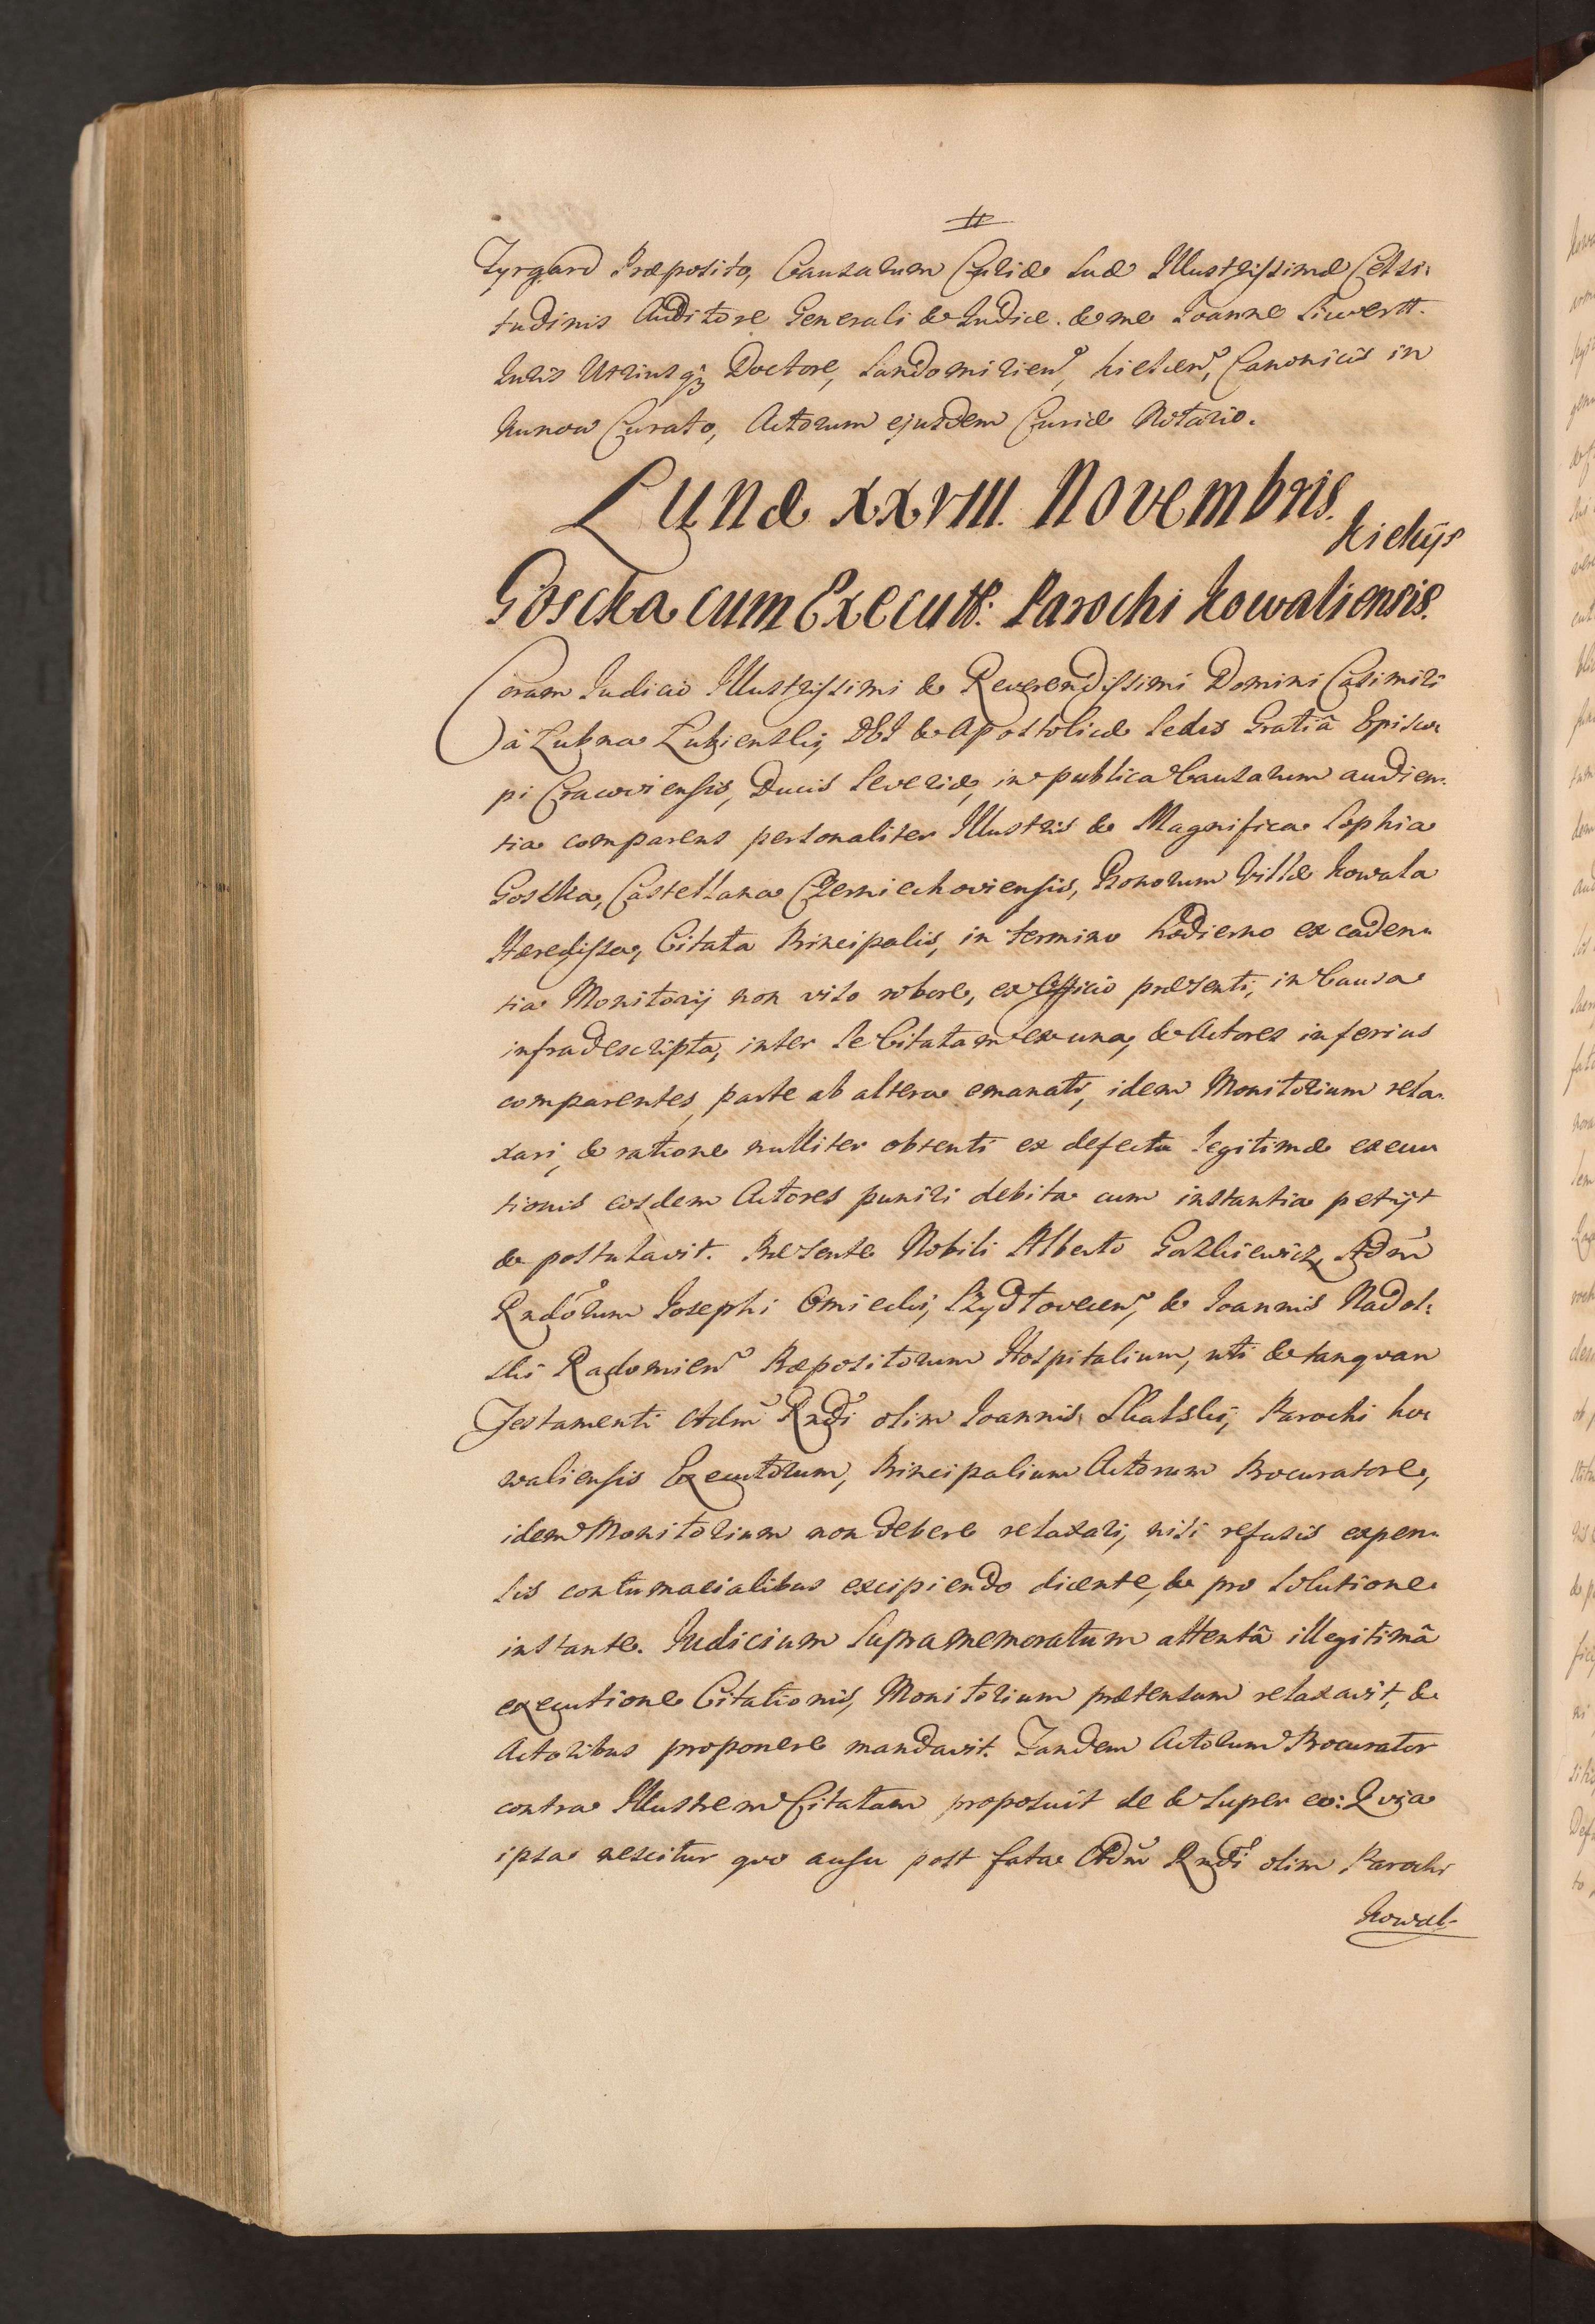 #
Tyrgard Præposito, Causarum Curiæ Suæ Illustrissimæ Celsi:
tudinis Auditore Generali & Iudice. & me Ioanne Siwertt.
Iuris Utriusq3 Doctore, Sandomirien, Kielcen, Canonicis in
Kunow Curato, Actorum ejusdem Curiæ Notario.
Lunæ XXVIII. Novembris.
Kielcijs
Goscka cum Executt: Parochi Kowaliensis.
Coram Iudicio Illustrissimi & Reverendissimi Domini Casimiri
à Lubna Lubienski, DEI & Apostolicæ Sedis Gratiâ Episco:
pi Cracoviensis, Ducis Severiæ, in publica Causarum audien:
tia comparens personaliter Illustris & Magnifica Sophia
Goska, Castellana Czerniechoviensis, Bonorum Villæ Kowala
Hæredissa, Citata Principalis, in termino hodierno ex caden:
tia Monitorij non viso robore, ex Officio præsenti, in Causa
infradescripta, inter Se Citatam ex una, & Actores inferius
comparentes, parte ab altera emanati, idem Monitorium rela:
xari, & ratione nulliter obtenti ex defectu legitimæ execu:
tionis eosdem Actores puniri debita cum instantia petijt
& postulavit. Præsente Nobili Alberto Gozkiewicz, Adm
Rndorum Josephi Omiecki, Szydlovecen, & Ioannis Nadol:
ski Radomien Præpositorum Hospitalium, uti & tanquam
Testamenti Adm Rndi olim Ioannis Skalski, Parochi Ko:
waliensis Executorum, Principalium Actorum Procuratore,
idem Monitorium non debere relaxari, nisi refusis expen:
sis contumacialibus excipiendo dicente, & pro Solutione
instante. Iudicium Supramemoratum attentâ illegitimâ
executione Citationis, Monitorium prætensum relaxavit, &
Actoribus proponere mandavit. Tandem Actorum Procurator
contra Illustrem Citatam proposuit de & super eo: Quia
ipsa nescitur quo ausu post fata Adm Rndi olim Parochi
Kowal-